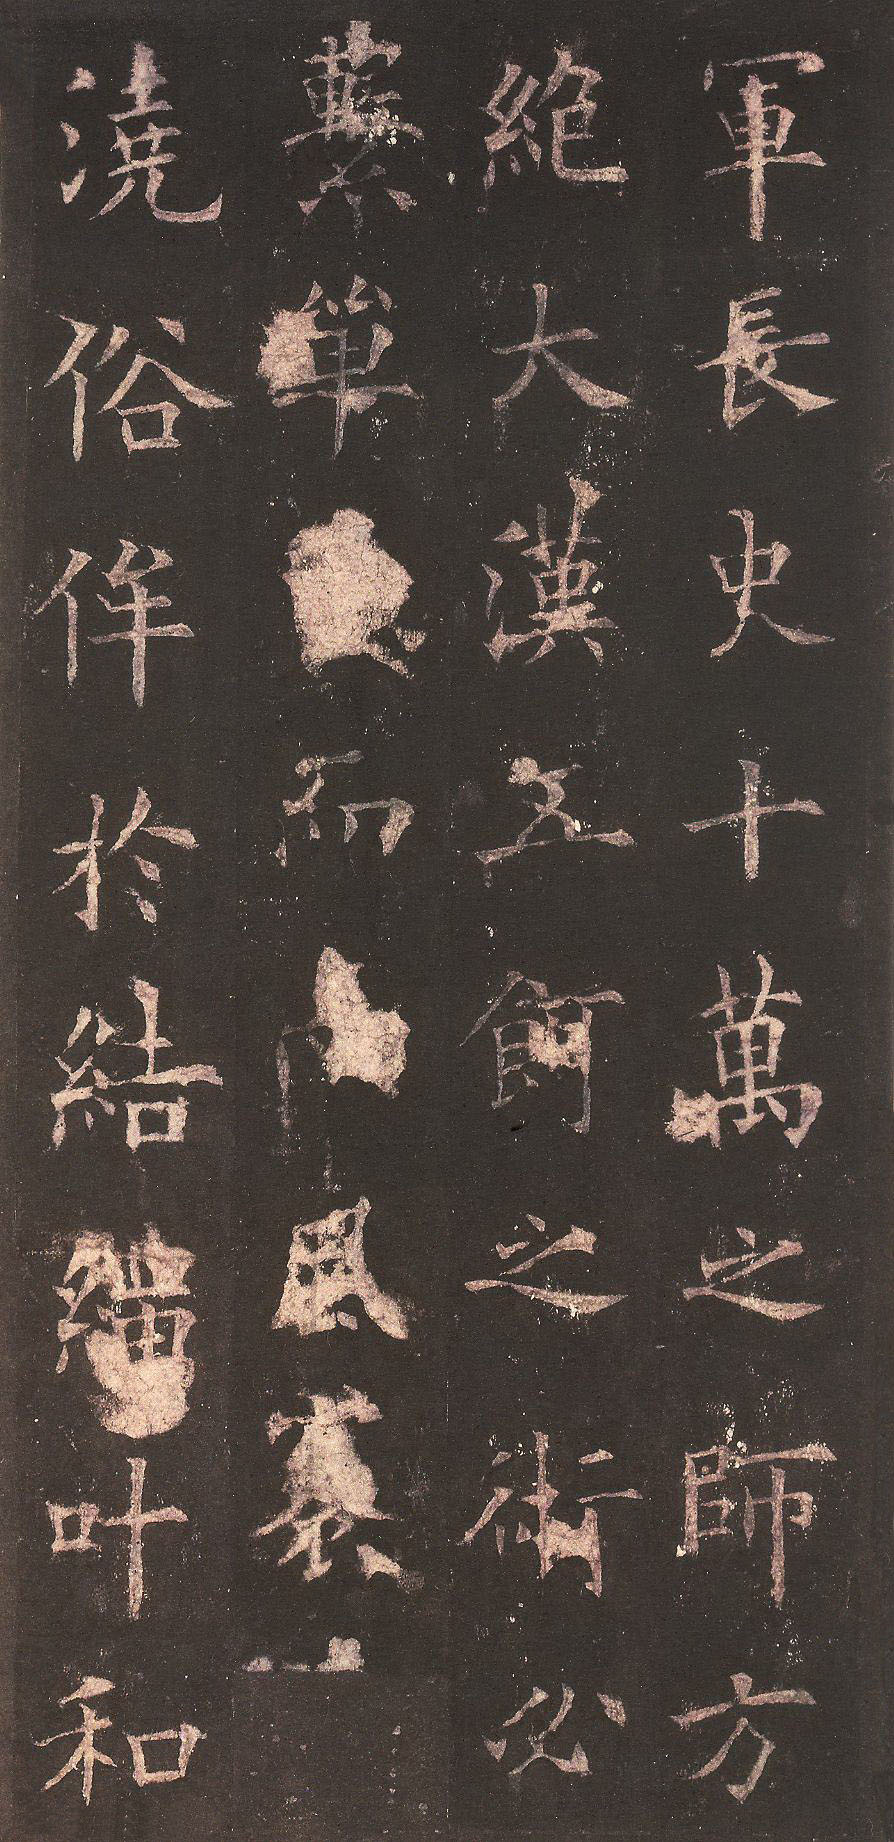 軍長史十萬之師方
絶大漢五餌之術必
蘂單而風塞
澆俗侔於結繩叶和